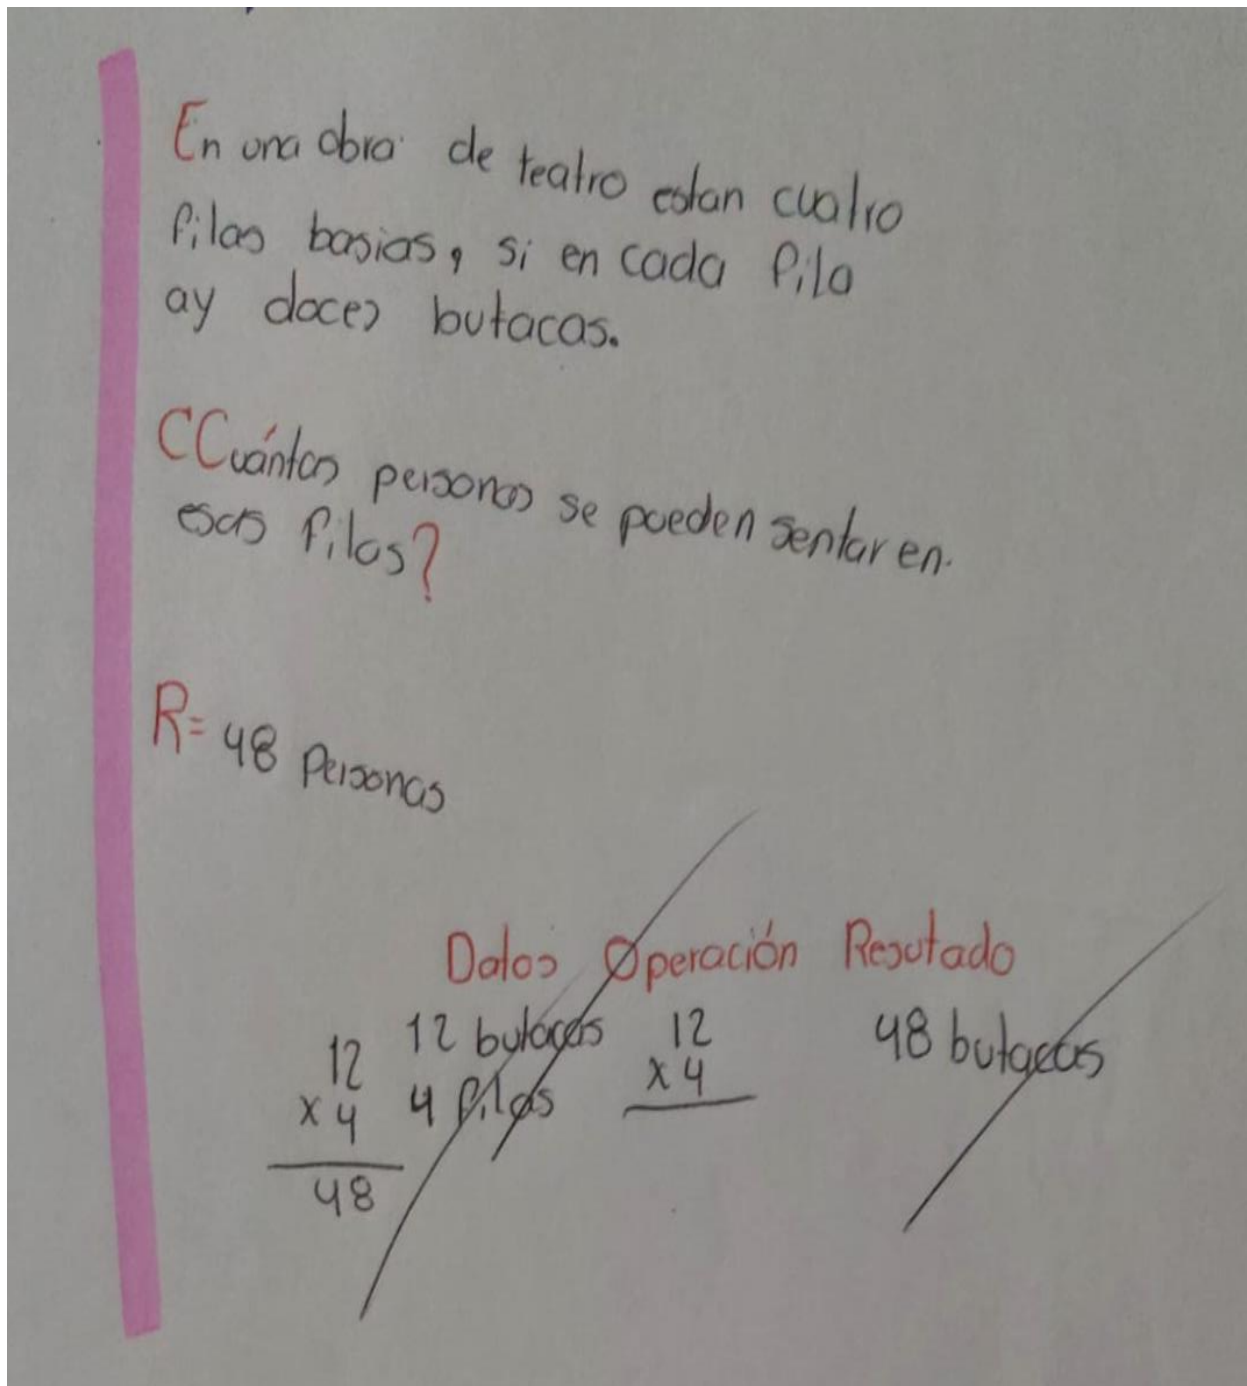 En una obra de teatro estan cuatro
filas basias, si en cada fila
ay doces butacas.
CCuántas personas se pueden sentar en.
esas filas?
R= 48 Personas
Datos Operación Resutado
12 12 butacas 12 48 butacas
x 4 4 filas x 4
48